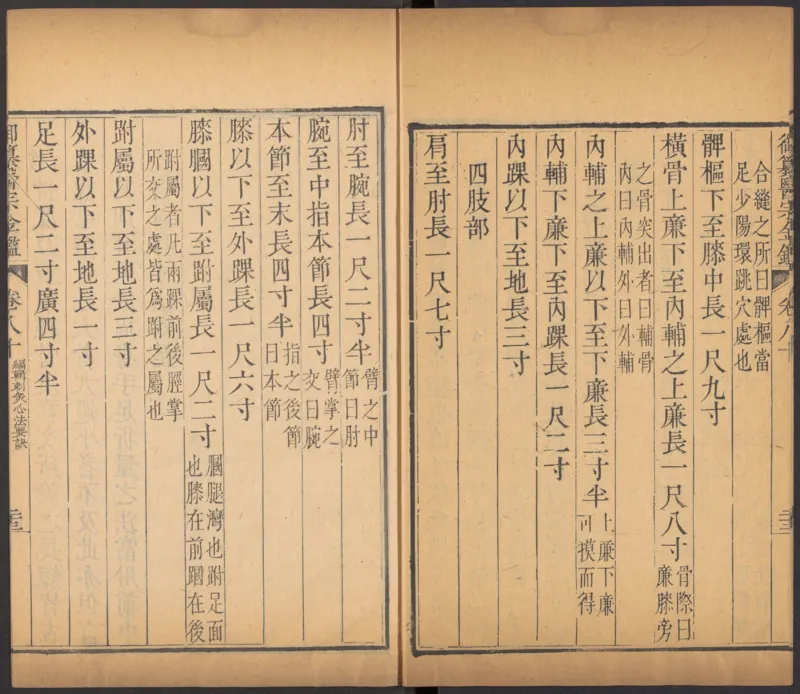 御纂醫宗金鑑 卷八十 二三
合縫之所曰髀樞當
足少陽環跳穴處也
髀樞下至膝中長一尺九寸
橫骨上廉下至內輔之上廉長一尺八寸 骨際曰
廉膝旁
之骨突出者曰輔骨
內曰內輔外曰外輔
內輔之上廉以下至下廉長三寸半 上廉下廉
可摸而得
內輔下廉下至內踝長一尺二寸
內踝以下至地長三寸
四肢部
肩至肘長一尺七寸
肘至腕長一尺二寸半 臂之中
節曰肘
腕至中指本節長四寸 臂掌之
交曰腕
本節至末長四寸半 指之後節
曰本節
膝以下至外踝長一尺六寸
膝膕以下至跗屬長一尺二寸 膕腿灣也跗足面
也膝在前膕在後
跗屬者凡兩踝前後脛掌
所交之處皆為跗之屬也
跗屬以下至地長三寸
外踝以下至地長一寸
足長一尺二寸廣四寸半
御纂醫宗金鑑 卷八十 編輯刺灸心法要訣 二三